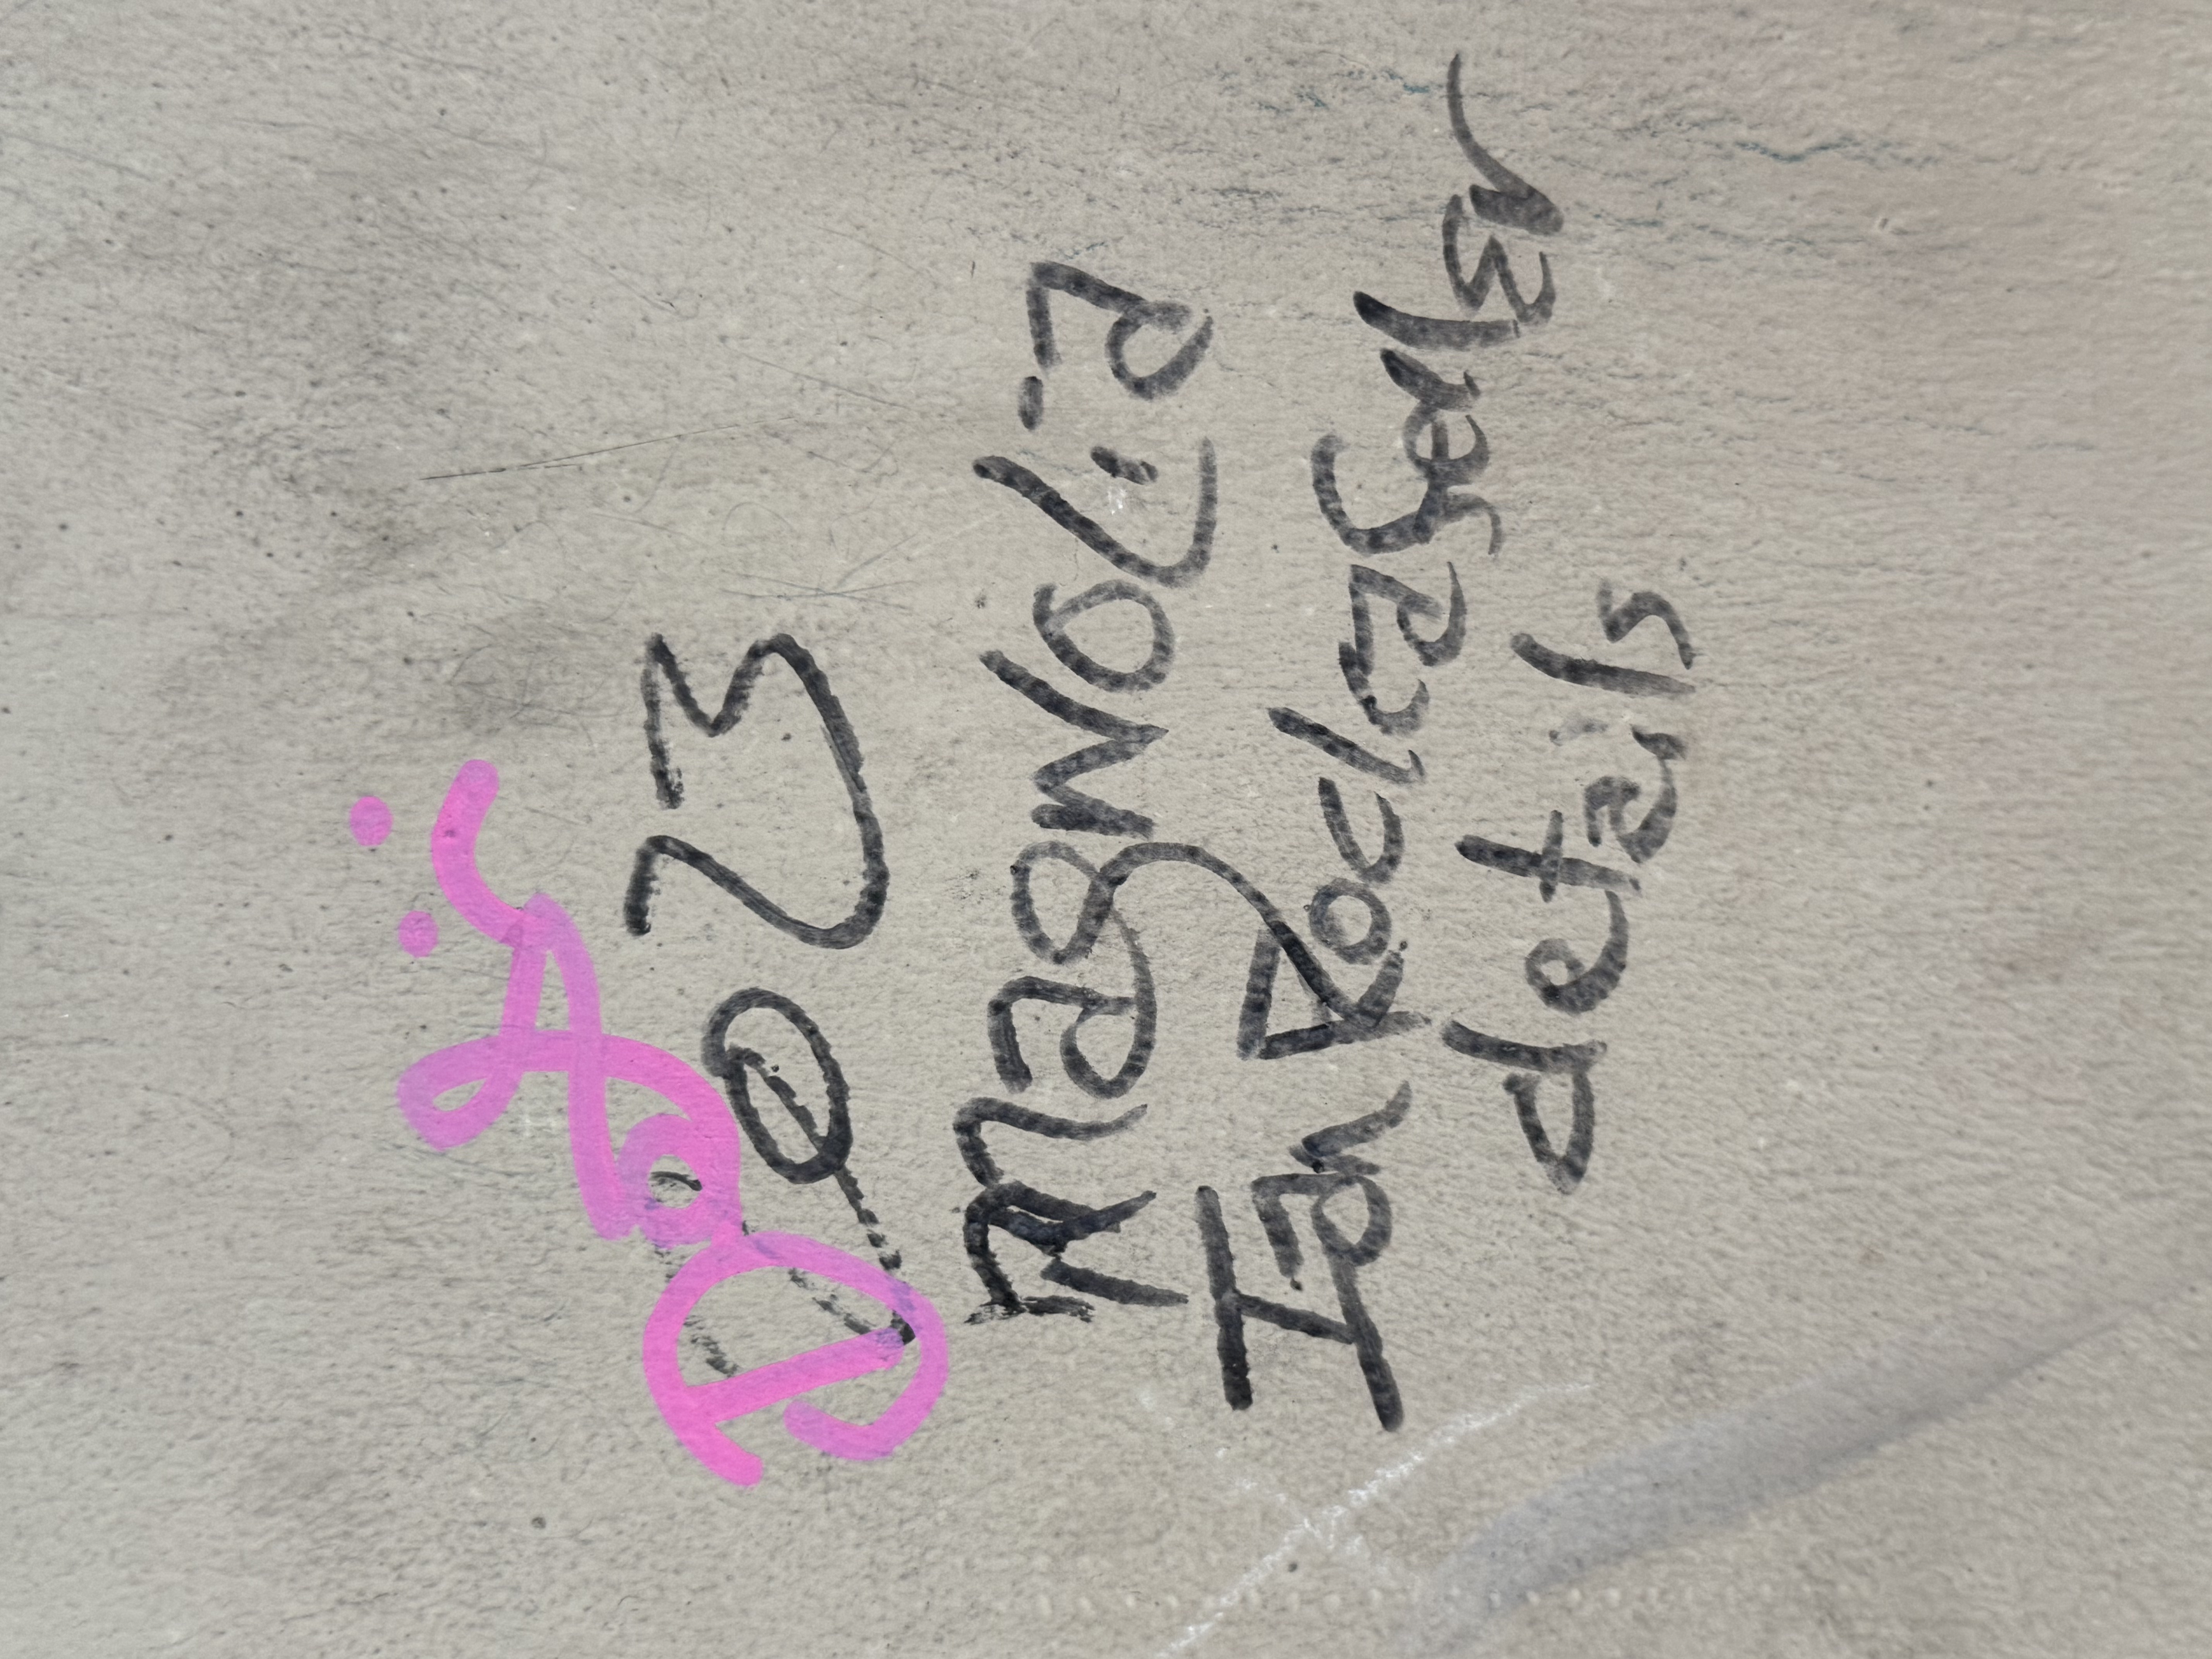 2023
magnolia
Ian Rocleafeller
details